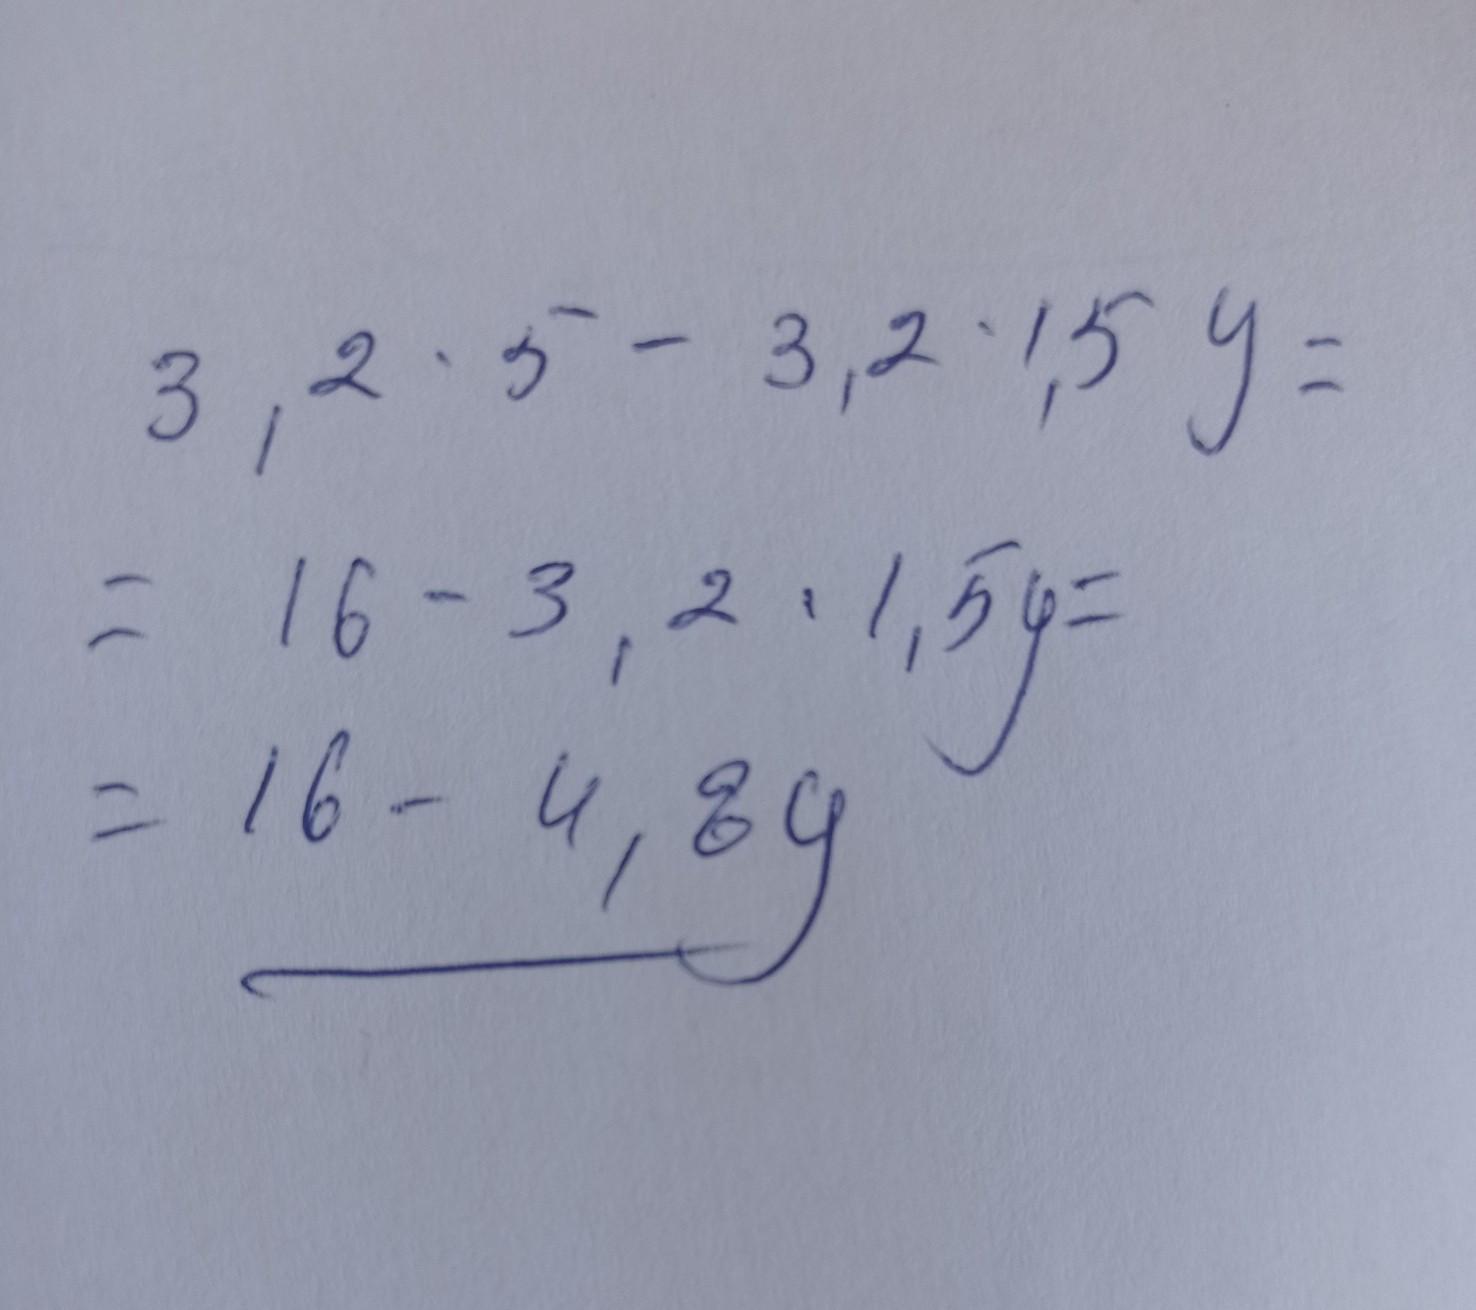 3,2 · 5 - 3,2 · 1,5 y =
= 16 - 3,2 · 1,5y =
= 16 - 4,8y